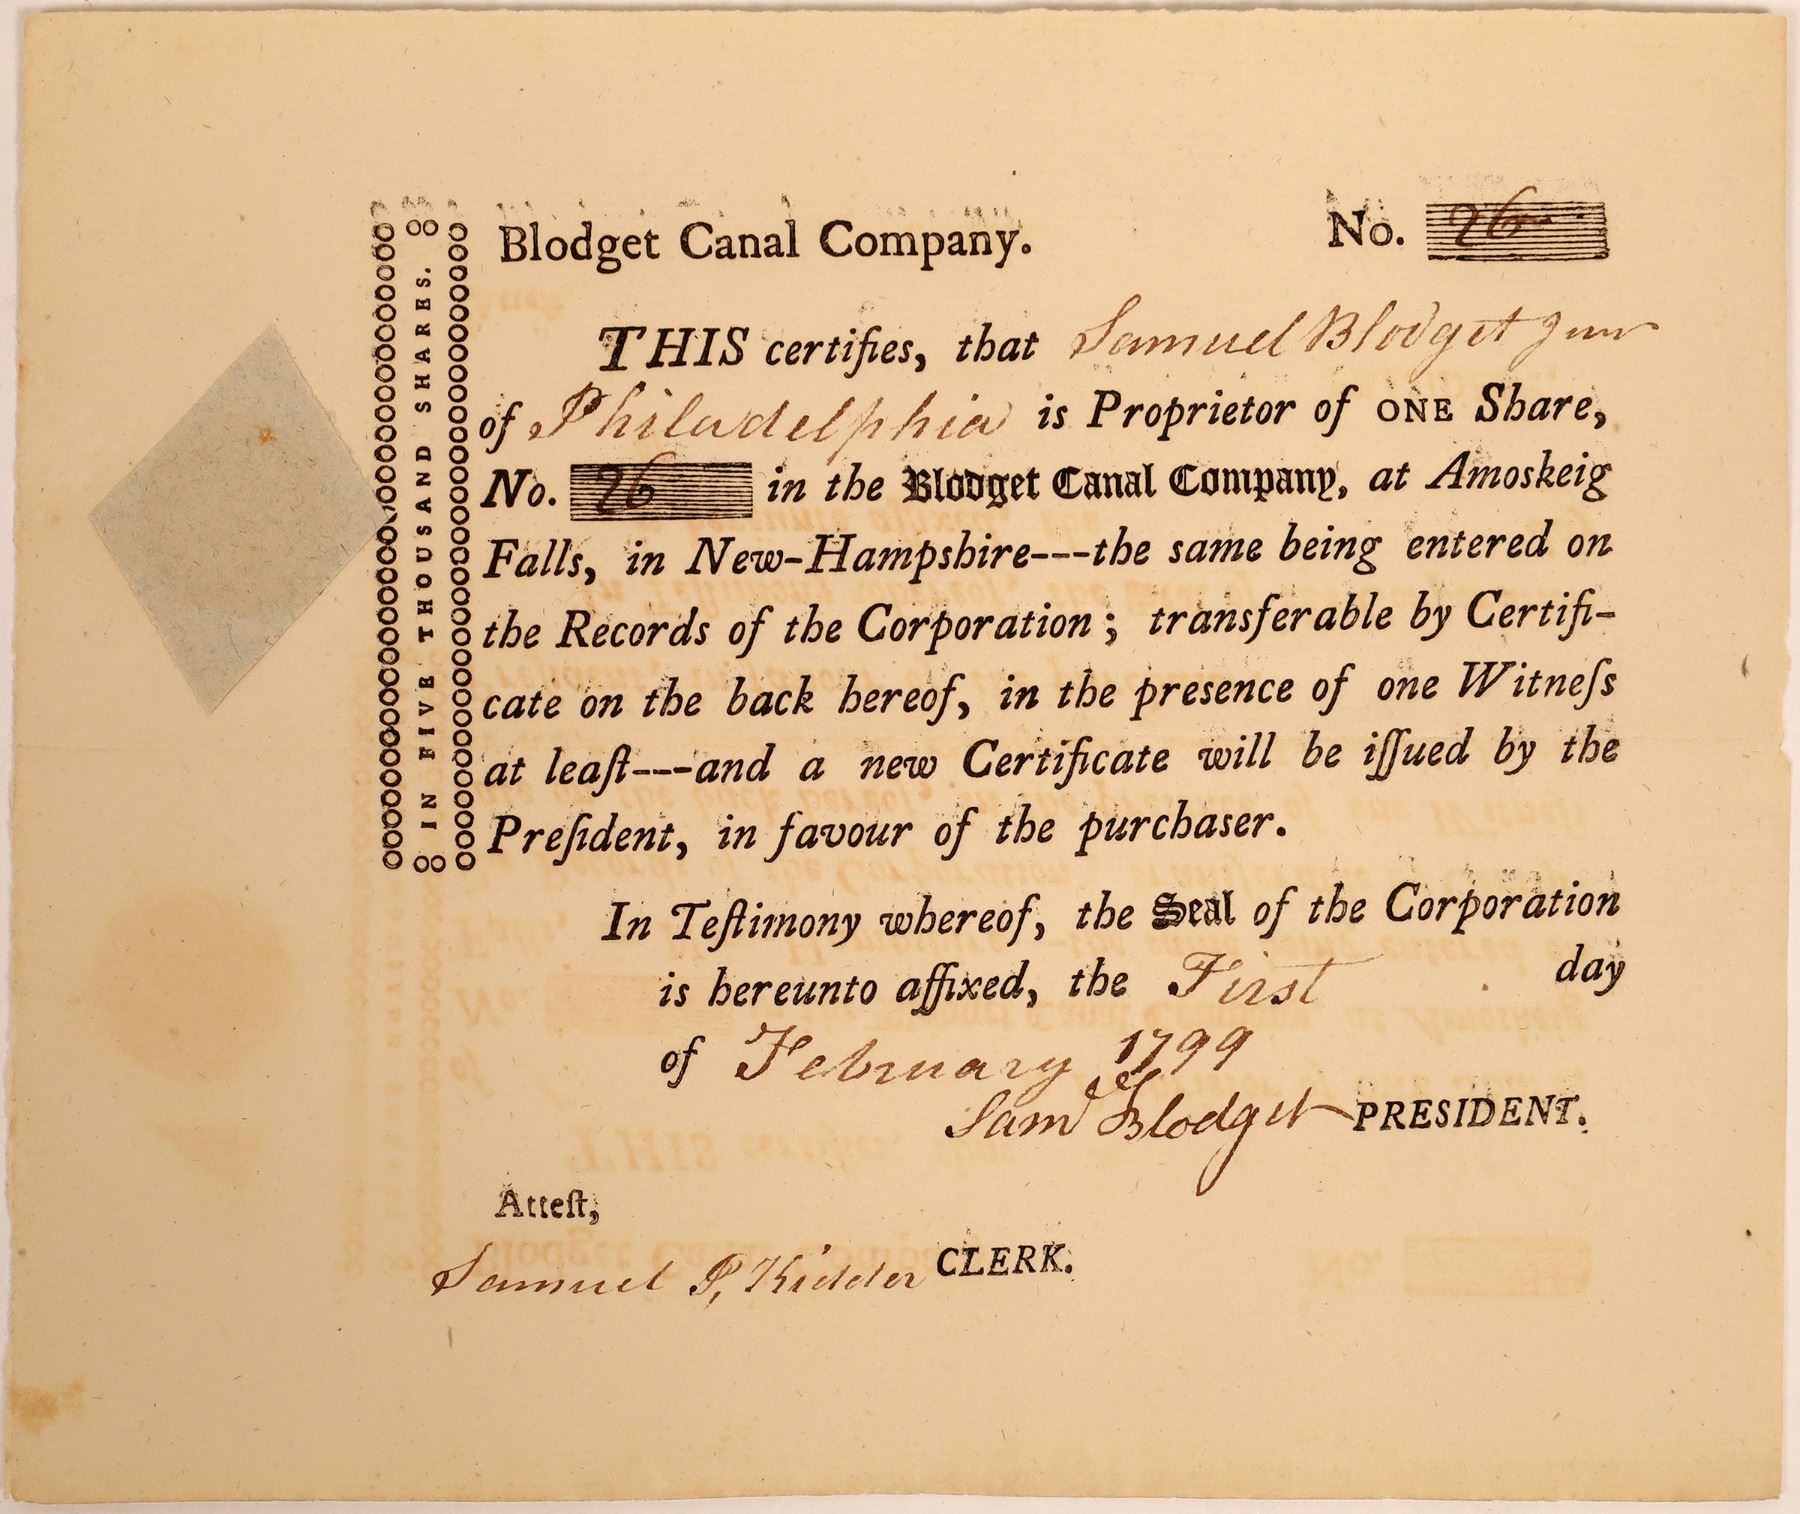 Blodget Canal Company.
No. 26
IN FIVE THOUSAND SHARES.
THIS certifies, that Samuel Blodget Junr
of Philadelphia is Proprietor of ONE Share,
No. 26 in the Blodget Canal Company, at Amoskeig
Falls, in New-Hampshire---the same being entered on
the Records of the Corporation; transferable by Certifi-
cate on the back hereof, in the presence of one Witneſs
at leaſt---and a new Certificate will be iſſued by the
Preſident, in favour of the purchaser.
In Teſtimony whereof, the Seal of the Corporation
is hereunto affixed, the First day
of February 1799
Saml Blodget PRESIDENT.
Atteſt,
Samuel P, Kidder CLERK.